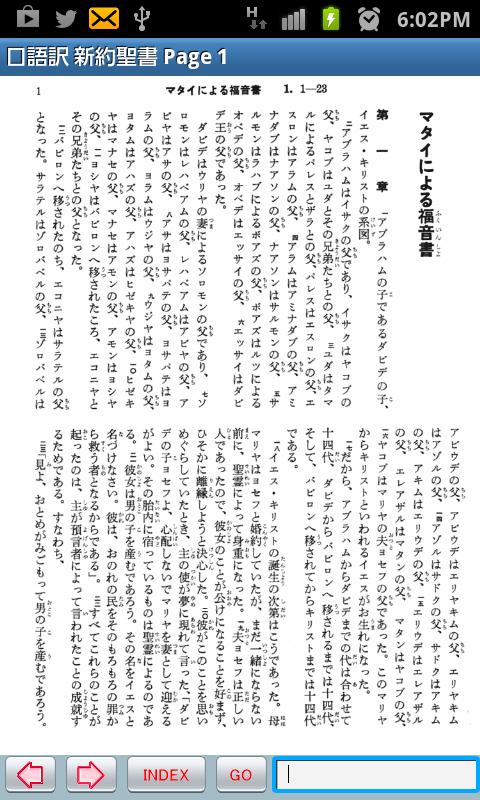 6:02PM
口語訳 新約聖書 Page 1
1
マタイによる福音書 1. 1—23
マタイによる福音書
第一章 一アブラハムの子であるダビデの子、
イエス・キリストの系図。
二アブラハムはイサクの父であり、イサクはヤコブの
父、ヤコブはユダとその兄弟たちとの父、三ユダはタマ
によるパレスとザラとの父、パレスはエスロンの父、エ
スロンはアラムの父、四アラムはアミナダブの父、アミ
ナダブはナアソンの父、ナアソンはサルモンの父、五サ
ルモンはラハブによるボアズの父、ボアズはルツによる
オベデの父、オベデはエッサイの父、六エッサイはダビ
デ王の父であった。
ダビデはウリヤの妻によるソロモンの父であり、七ソ
ロモンはレハベアムの父、レハベアムはアビヤの父、ア
ビヤはアサの父、八アサはヨサパテの父、ヨサパテはヨ
ラムの父、ヨラムはウジヤの父、九ウジヤはヨタムの父、
ヨタムはアハズの父、アハズはヒゼキヤの父、一〇ヒゼキ
ヤはマナセの父、マナセはアモンの父、アモンはヨシヤ
の父、一一ヨシヤはバビロンへ移されたころ、エコニヤと
その兄弟たちとの父となった。
一二バビロンへ移されたのち、エコニヤはサラテルの父
となった。サラテルはゾロバベルの父、一三ゾロバベルは
アビウデの父、アビウデはエリヤキムの父、エリヤキム
はアゾルの父、一四アゾルはサドクの父、サドクはアキム
の父、アキムはエリウデの父、一五エリウデはエレアザル
の父、エレアザルはマタンの父、マタンはヤコブの父、
一六ヤコブはマリヤの夫ヨセフの父であった。このマリヤ
からキリストといわれるイエスがお生れになった。
一七だから、アブラハムからダビデまでの代は合わせて
十四代、ダビデからバビロンへ移されるまでは十四代、
そして、バビロンへ移されてからキリストまでは十四代
である。
一八イエス・キリストの誕生の次第はこうであった。母
マリヤはヨセフと婚約していたが、まだ一緒にならない
前に、聖霊によって身重になった。一九夫ヨセフは正しい
人であったので、彼女のことが公けになることを好まず、
ひそかに離縁しようと決心した。二〇彼がこのことを思い
めぐらしていたとき、主の使が夢に現れて言った、「ダビ
デの子ヨセフよ、心配しないでマリヤを妻として迎える
がよい。その胎内に宿っているものは聖霊によるのであ
る。二一彼女は男の子を産むであろう。その名をイエスと
名づけなさい。彼は、おのれの民をそのもろもろの罪か
ら救う者となるからである」。二二すべてこれらのことが
起ったのは、主が預言者によって言われたことの成就す
るためである。すなわち、
二三「見よ、おとめがみごもって男の子を産むであろう。
INDEX
GO